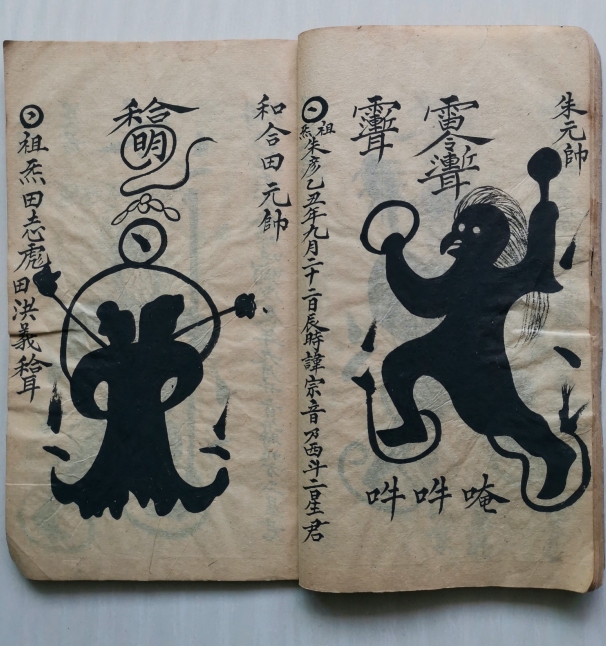 朱元帥
唵吽吽
祖炁朱彦乙丑年九月二十二日辰時諱宗音乃西斗二星君
和合田元帥
明
祖炁田志彪田洪義